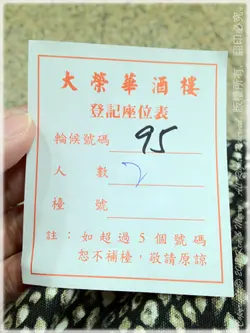 大榮華酒樓
登記座位表
輪候號碼 95
人數 2
檯號
註：如超過5個號碼
恕不補檯，敬請原諒